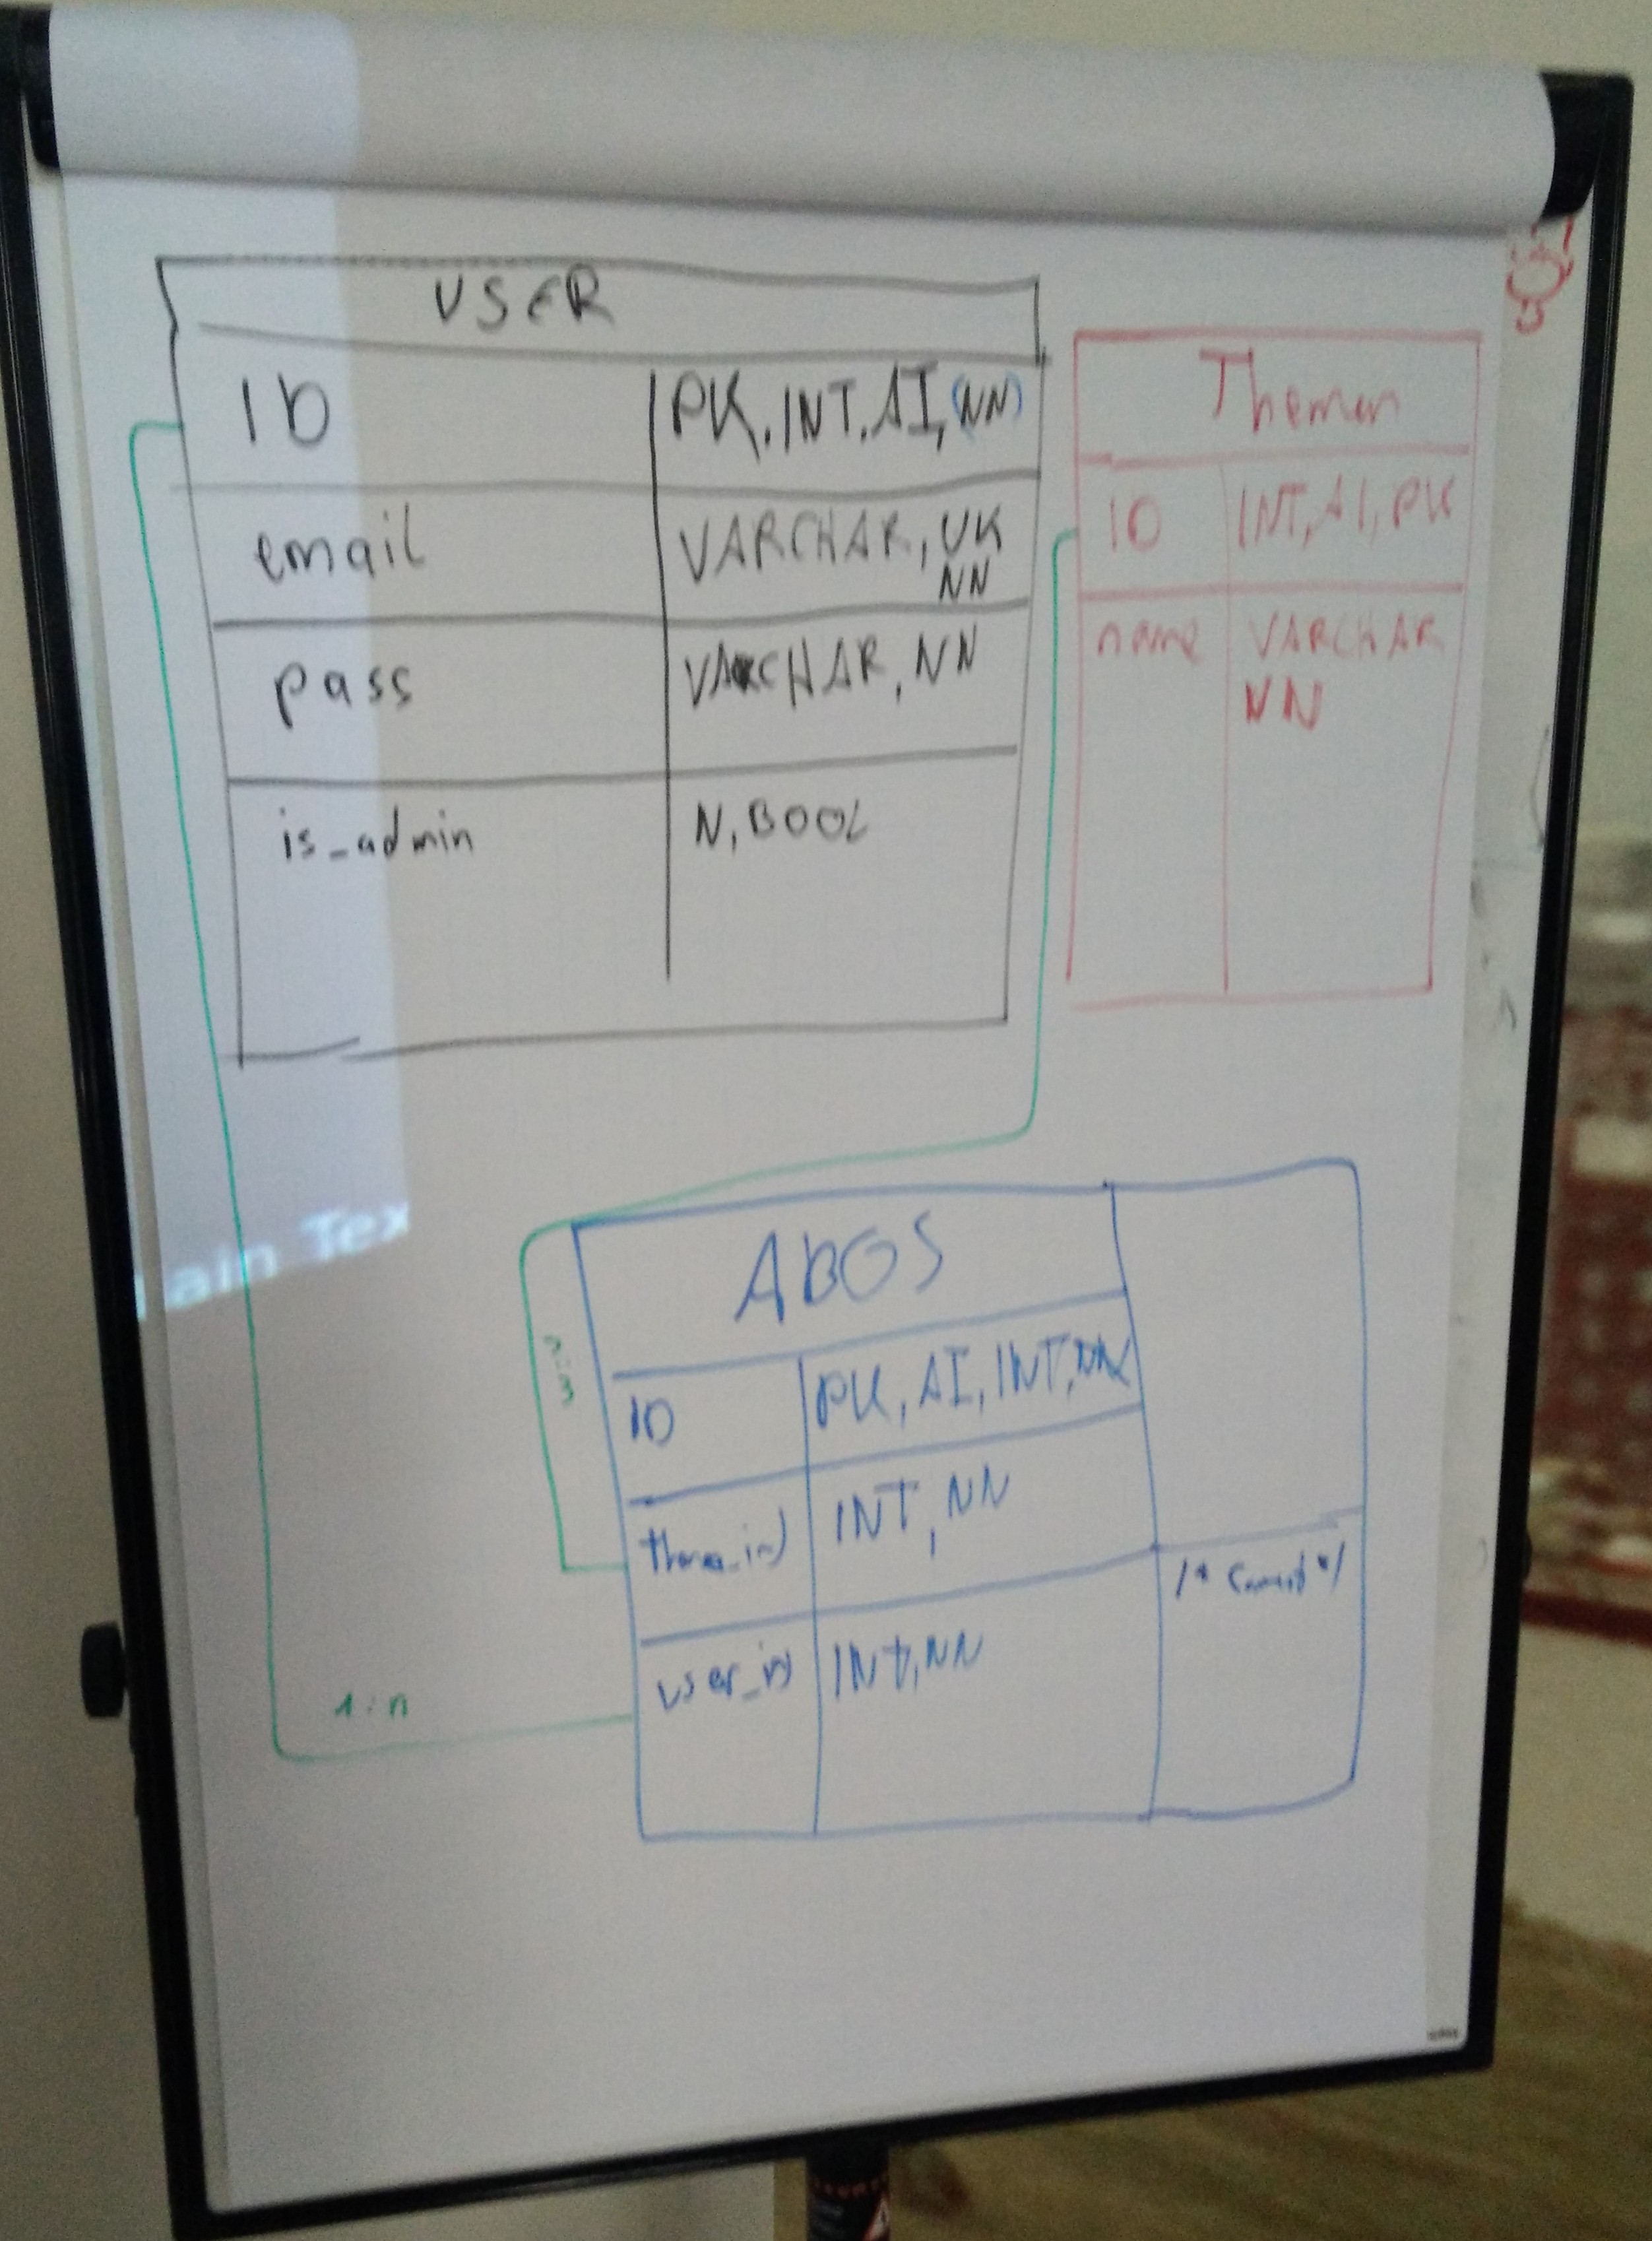 USER
ID PK, INT, AI, (NN)
email VARCHAR, UK
NN
pass VARCHAR, NN
is_admin N, BOOL
Themen
ID INT, AI, PK
name VARCHAR
NN
ain Tex
ABOS
ID PK, AI, INT, NN
thema_id INT, NN
user_id INT, NN
1:n